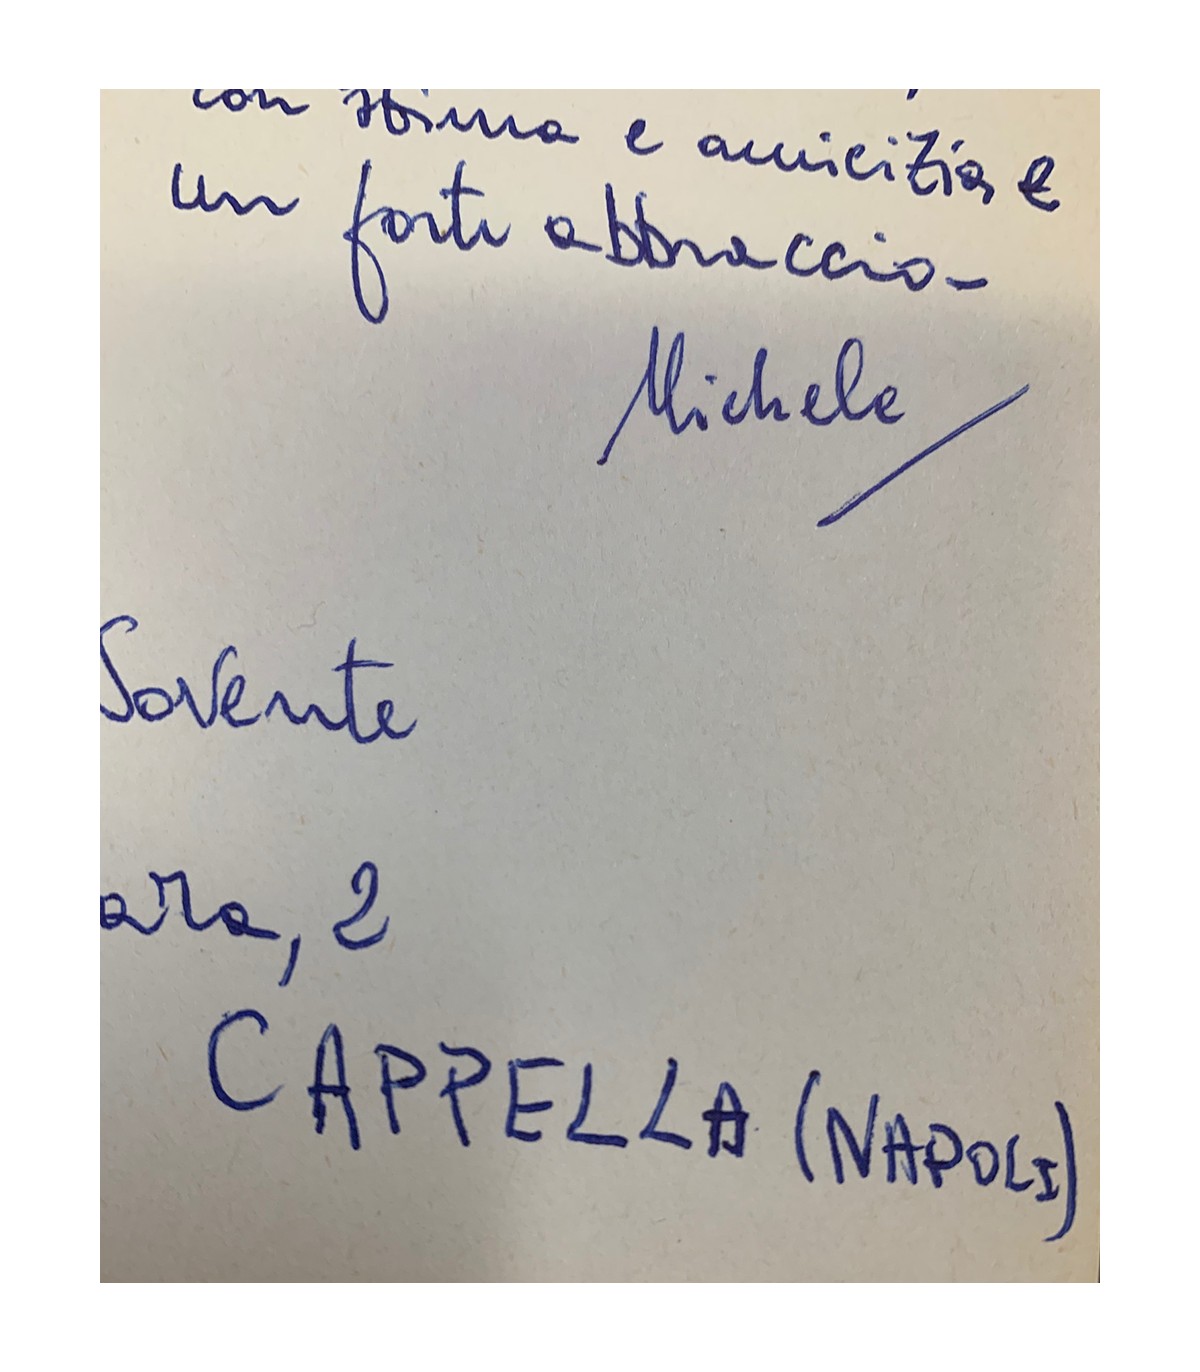 con stima e amicizia e
un forte abbraccio-
Michele
Sovente
ara, 2
CAPPELLA (NAPOLI)